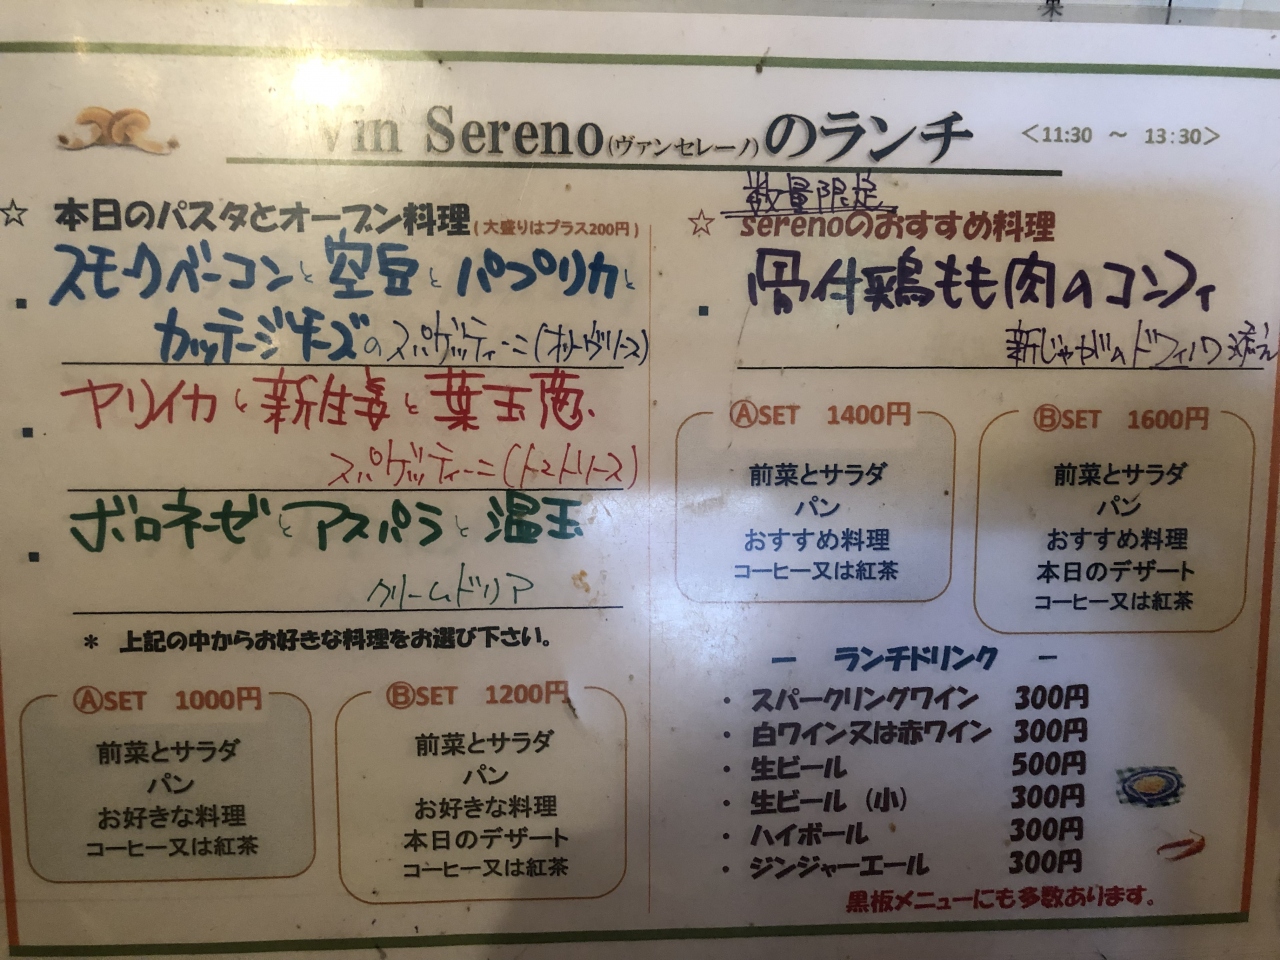 Vin Sereno(ヴァンセレーノ)のランチ <11:30 ～ 13:30>
☆ 本日のパスタとオーブン料理(大盛りはプラス200円)
・スモークベーコンと空豆とパプリカと
カッテージチーズのスパゲッティーニ(オイルソース)
・ヤリイカと新生姜と葉玉葱
スパゲッティーニ(トマトソース)
・ボロネーゼとアスパラと温玉
クリームドリア
* 上記の中からお好きな料理をお選び下さい。
ⒶSET 1000円
前菜とサラダ
パン
お好きな料理
コーヒー又は紅茶
ⒷSET 1200円
前菜とサラダ
パン
お好きな料理
本日のデザート
コーヒー又は紅茶
数量限定
☆ serenoのおすすめ料理
・骨付鶏もも肉のコンフィ
新じゃがのドフィノワ添え
ⒶSET 1400円
前菜とサラダ
パン
おすすめ料理
コーヒー又は紅茶
ⒷSET 1600円
前菜とサラダ
パン
おすすめ料理
本日のデザート
コーヒー又は紅茶
ー ランチドリンク ー
・ スパークリングワイン 300円
・ 白ワイン又は赤ワイン 300円
・ 生ビール 500円
・ 生ビール (小) 300円
・ ハイボール 300円
・ ジンジャーエール 300円
黒板メニューにも多数あります。